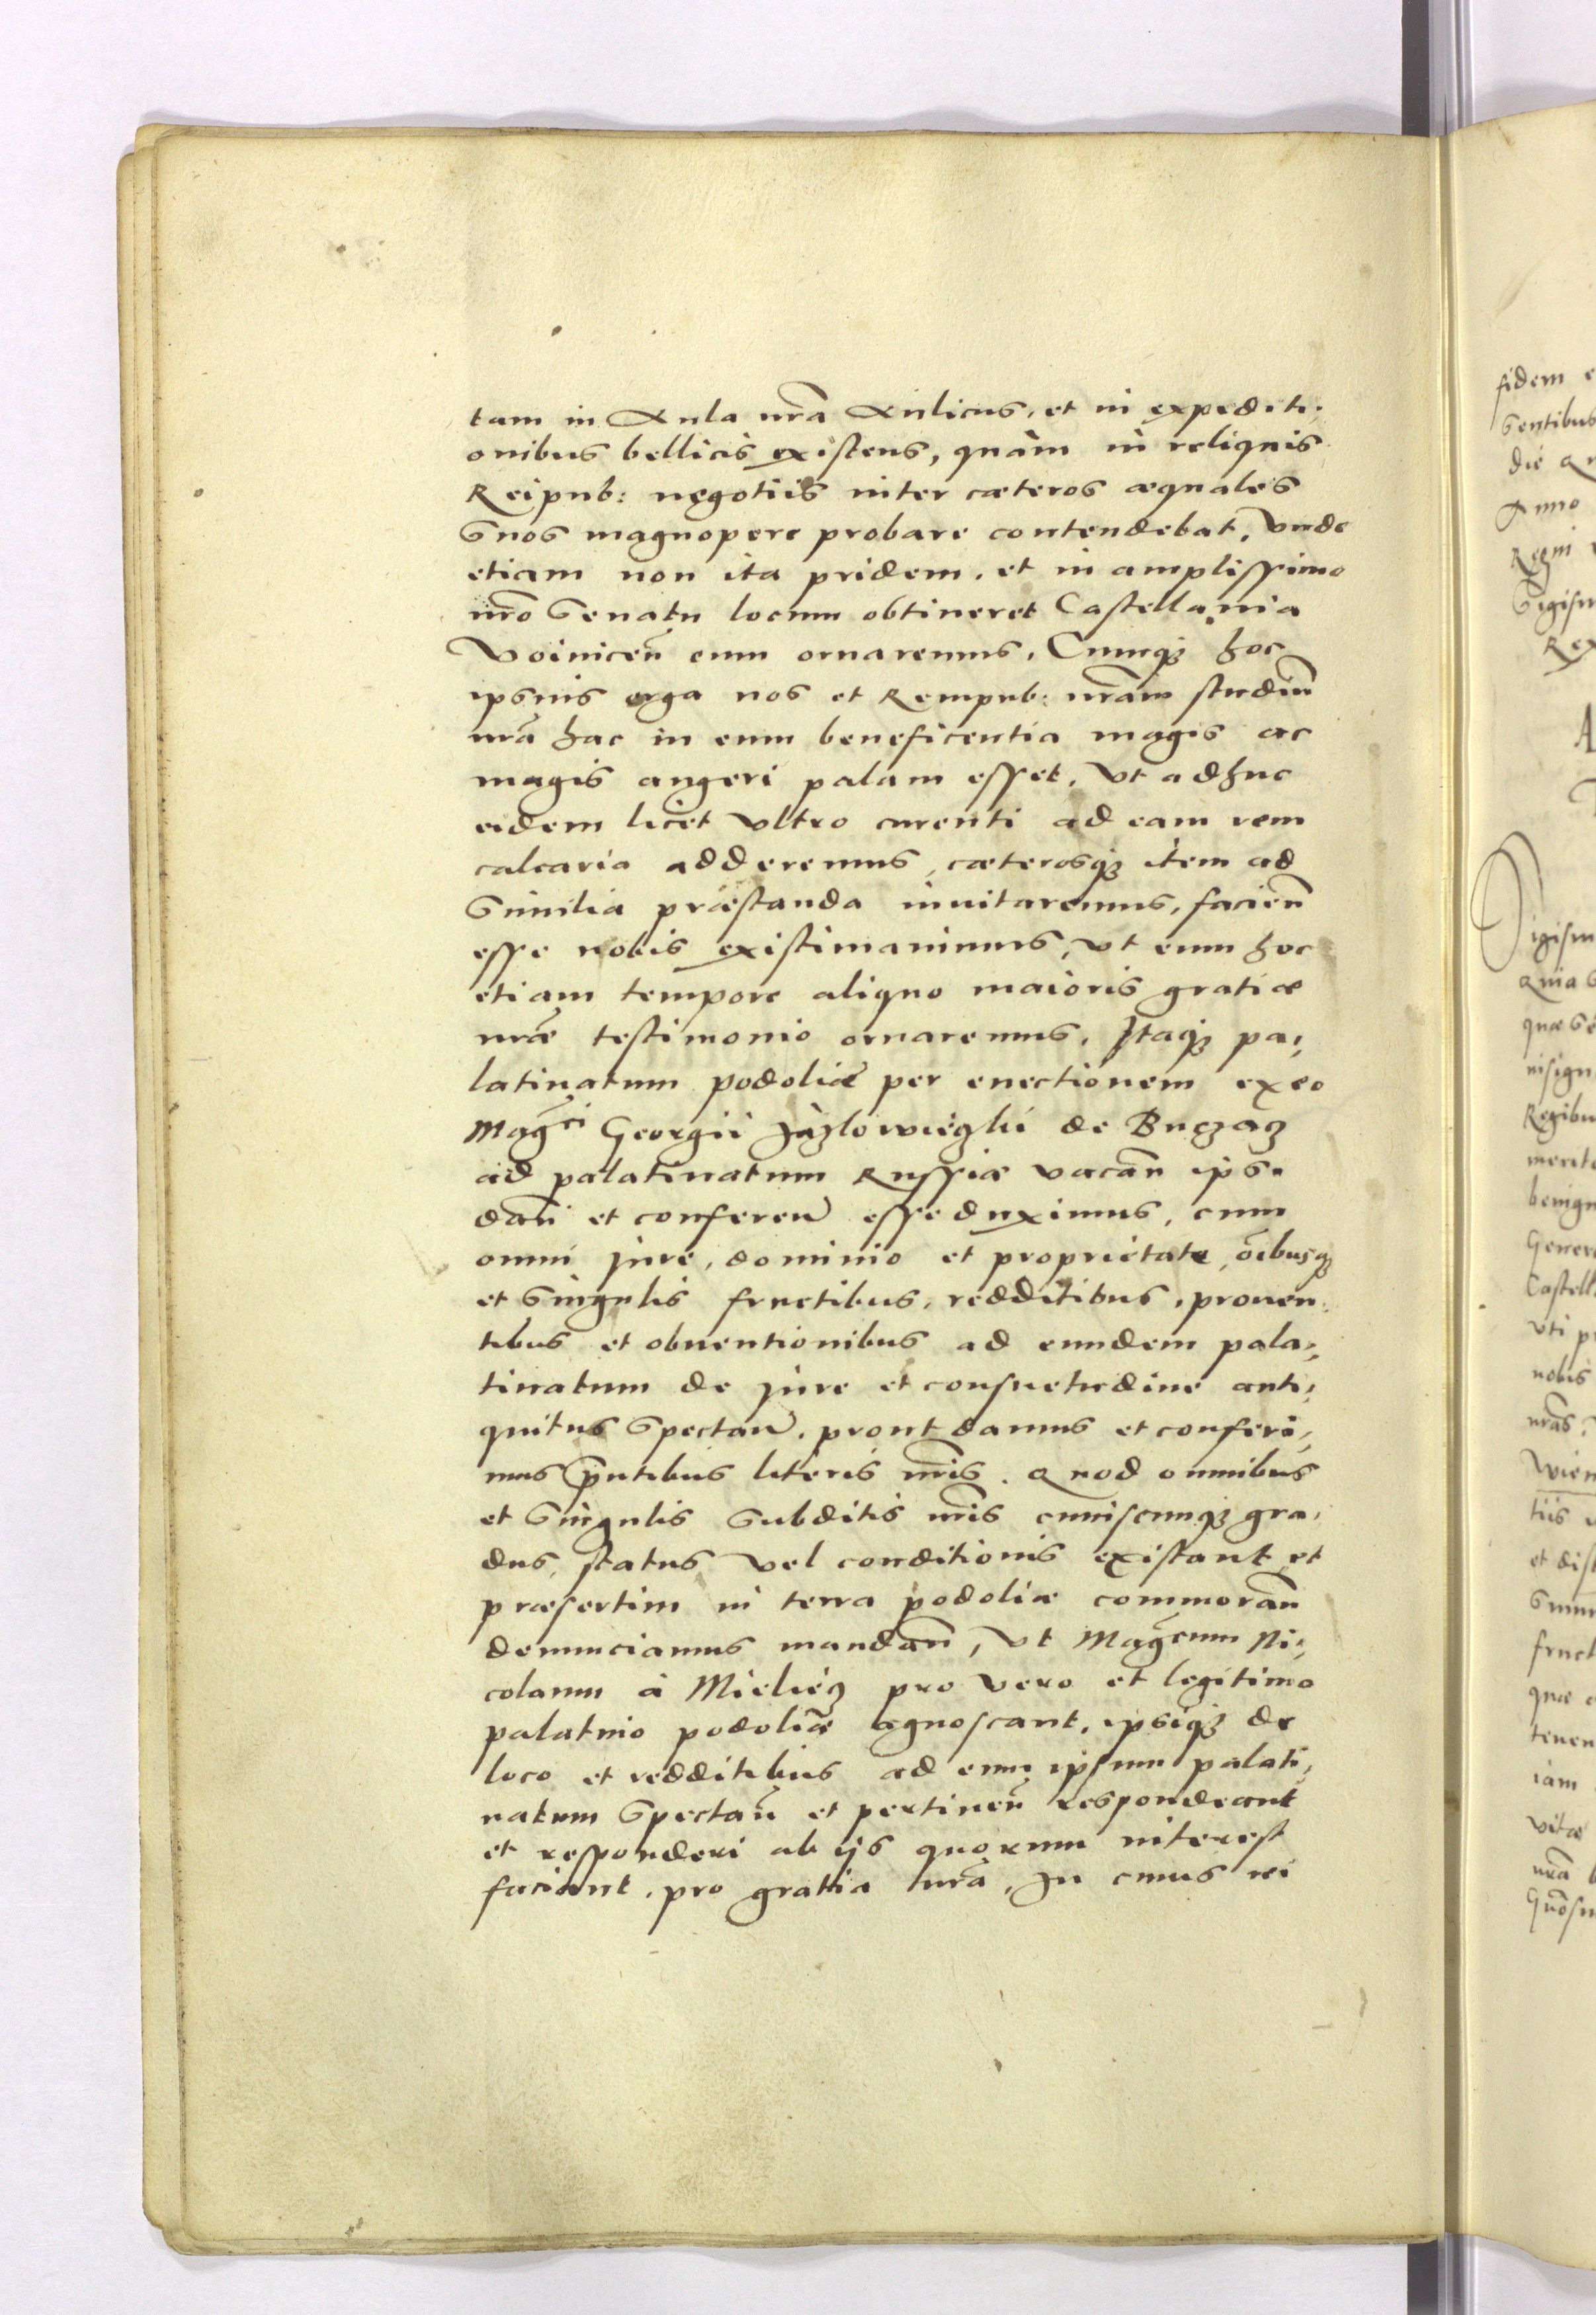 tam in Aula nrã Aulicus, et in expediti,
onibus bellicis existens, quàm in reliquis
Reipub: negotiis inter cæteros æquales
suos magnopere probare contendebat, Vnde
etiam non ita pridem, et in amplissimo
nrõ Senatu locum obtineret Castellania
Voiniceñ eum ornaremus. Cumq3 hoc
ipsius erga nos et Rempub: nrãm studiũ
nrã hac in eum beneficentia magis ac
magis augeri palam esset, Vt adhuc
eidem licet Vltro currenti ad eam rem
calcaria adderemus, cæterosq3 item ad
similia præstanda inuitaremus, facieñ
esse nobis existimauimus, Vt eum hoc
etiam tempore aliquo maioris gratiæ
nræ̃ testimonio ornaremus. Itaq3 pa,
latinatum podoliæ per euectionem ex eo
Mag̃ci Georgii Jazlowieczkii de Buczacz
ad palatinatum Russiæ Vacañ ipsi
dañ et confereñ esse duximus, cum
omni jure, dominio et proprietate, oĩbusq3
et singulis fructibus, redditibus, prouen,
tibus et obuentionibus ad eundem pala,
tinatum de jure et consuetudine anti,
quitus spectañ. prout damus et conferi,
mus p̃ntibus literis nrĩs. Quod omnibus
et singulis subditis nrĩs cuiuscunq3 gra,
dus, status Vel conditionis existant et
præsertim in terra podoliæ commorañ
denunciamus mandañ, Vt Mag̃cum Ni,
colaum à Mieliecz pro Vero et legitimo
palatino podoliæ agnoscant, ipsiq3 de
loco et redditibus ad eum ipsum palati,
natum spectañ et pertineñ respondeant
et responderi ab ijs quorum interest
faciant, pro gratia nrã, In cuius rei
fidem e
sentibus
die
Anno
Regni
Sigism
Rex
A
Sigism
Quia
quæ
insign
Regibu
merit
benign
Genero
Castell
Vti p
nobis
nrãs
Wien
tiis
et dis
fruct
quæ
tenen
iam
vitæ
nrã